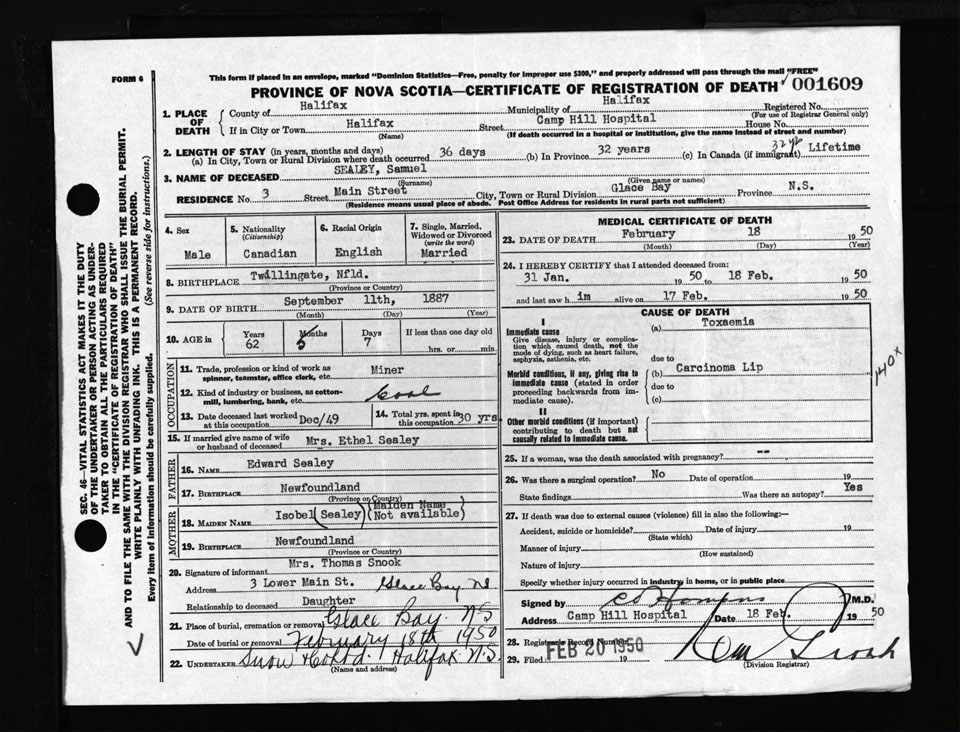 FORM 6
This form if placed in an envelope, marked "Dominion Statistics—Free, penalty for improper use $300," and properly addressed will pass through the mail "FREE"
PROVINCE OF NOVA SCOTIA—CERTIFICATE OF REGISTRATION OF DEATH
001609
1. PLACE OF DEATH
County of Halifax Municipality of Halifax Registered No.
(For use of Registrar General only)
If in City or Town Halifax Street Camp Hill Hospital House No.
(Name) (If death occurred in a hospital or institution, give the name instead of street and number)
2. LENGTH OF STAY (in years, months and days)
(a) In City, Town or Rural Division where death occurred 36 days (b) In Province 32 years (c) In Canada (if immigrant) 32 yrs Lifetime
3. NAME OF DECEASED SEALEY, Samuel
(Surname) (Given name or names)
RESIDENCE No. 3 Street Main Street City, Town or Rural Division Glace Bay Province N.S.
(Residence means usual place of abode. Post Office Address for residents in rural parts not sufficient)
4. Sex Male
5. Nationality (Citizenship) Canadian
6. Racial Origin English
7. Single, Married, Widowed or Divorced (write the word) Married
8. BIRTHPLACE Twillingate, Nfld.
(Province or Country)
9. DATE OF BIRTH September 11th, 1887
(Month) (Day) (Year)
10. AGE in Years 62 Months 5 Days 7 If less than one day old
hrs. or min.
OCCUPATION
11. Trade, profession or kind of work as spinner, teamster, office clerk, etc. Miner
12. Kind of industry or business, as cotton-mill, lumbering, bank, etc. Coal
13. Date deceased last worked at this occupation Dec/49
14. Total yrs. spent in this occupation 30 yrs.
15. If married give name of wife or husband of deceased Mrs. Ethel Sealey
FATHER
16. NAME Edward Sealey
17. BIRTHPLACE Newfoundland
(Province or Country)
MOTHER
18. MAIDEN NAME Isobel (Sealey) (Maiden Name Not available)
19. BIRTHPLACE Newfoundland
(Province or Country)
20. Signature of informant Mrs. Thomas Snook
Address 3 Lower Main St. Glace Bay NS
Relationship to deceased Daughter
21. Place of burial, cremation or removal Glace Bay NS
Date of burial or removal February 18th 1950
22. UNDERTAKER Snow & Co Ltd. Halifax N.S.
(Name and address)
MEDICAL CERTIFICATE OF DEATH
23. DATE OF DEATH February 18 1950
(Month) (Day) (Year)
24. I HEREBY CERTIFY that I attended deceased from:
31 Jan. 1950 to 18 Feb. 1950
and last saw him alive on 17 Feb. 1950
CAUSE OF DEATH
I
Immediate cause
Give disease, injury or complication which caused death, not the mode of dying, such as heart failure, asphyxia, asthenia, etc.
(a) Toxaemia
due to
Morbid conditions, if any, giving rise to immediate cause (stated in order proceeding backwards from immediate cause).
(b) Carcinoma Lip
due to
(c)
140x
II
Other morbid conditions (if important) contributing to death but not causally related to immediate cause.
25. If a woman, was the death associated with pregnancy? --
26. Was there a surgical operation? No Date of operation 19
State findings Was there an autopsy? Yes
27. If death was due to external causes (violence) fill in also the following:—
Accident, suicide or homicide? Date of injury 19
(State which)
Manner of injury
(How sustained)
Nature of injury
Specify whether injury occurred in industry, in home, or in public place
Signed by M.D.
Address Camp Hill Hospital Date 18 Feb. 1950
28. Registrar's Record Number
29. Filed FEB 20 1950 19
(Division Registrar)
SEC. 46—VITAL STATISTICS ACT MAKES IT THE DUTY
OF THE UNDERTAKER OR PERSON ACTING AS UNDERTAKER TO OBTAIN ALL THE PARTICULARS REQUIRED
IN THE "CERTIFICATE OF REGISTRATION OF DEATH"
AND TO FILE THE SAME WITH THE DIVISION REGISTRAR WHO SHALL ISSUE THE BURIAL PERMIT.
WRITE PLAINLY WITH UNFADING INK. THIS IS A PERMANENT RECORD.
Every item of information should be carefully supplied. (See reverse side for instructions.)